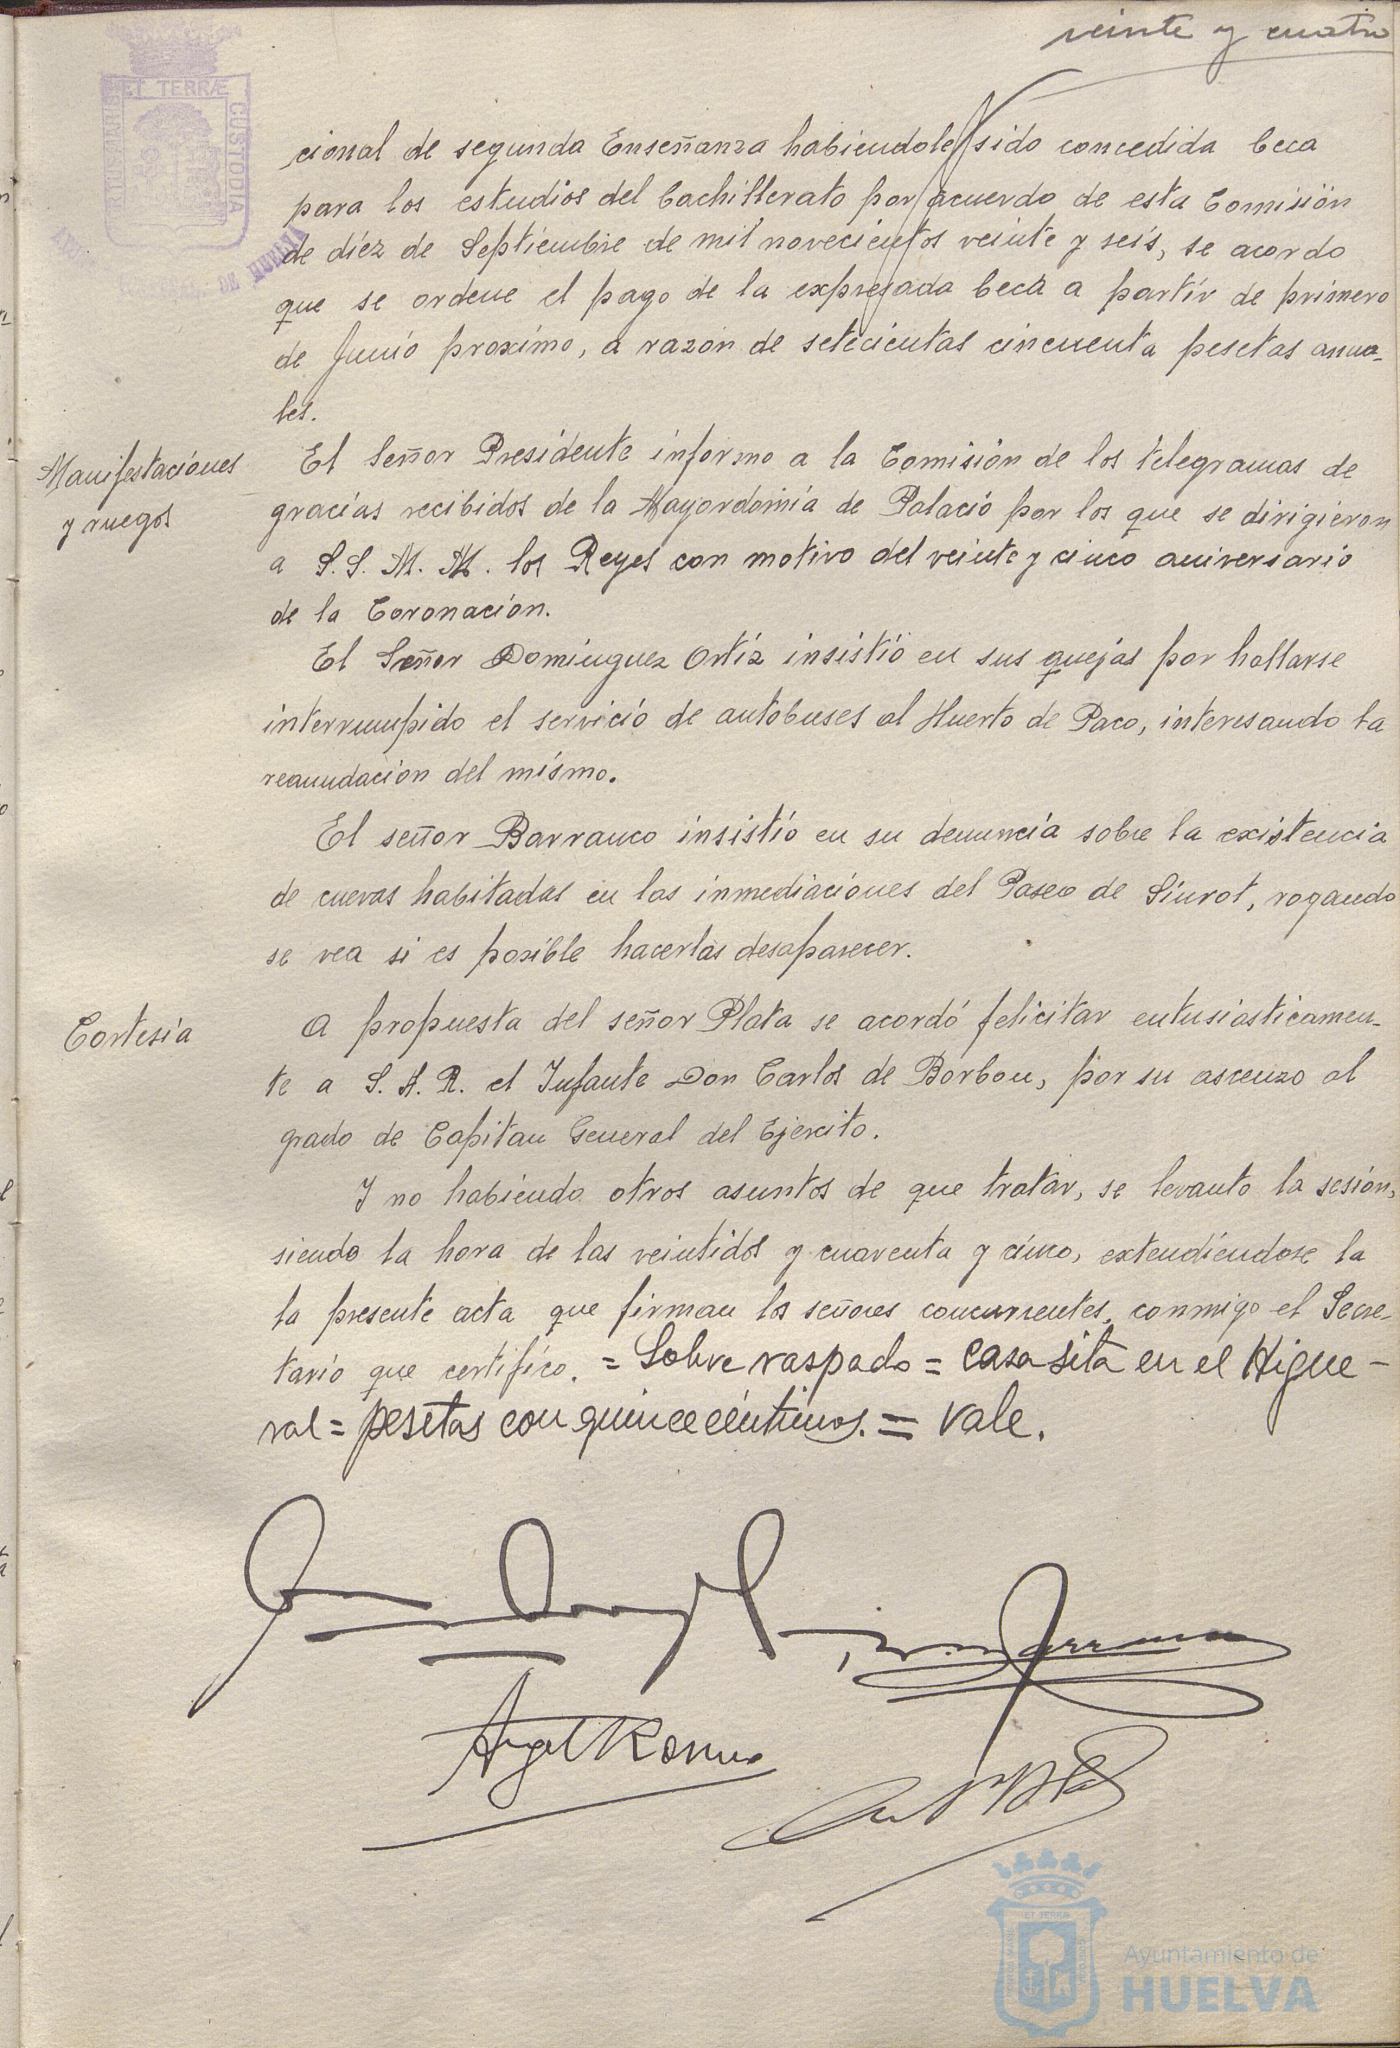 veinte y cuatro
ET TERRÆ
CUSTODIA
cional de segunda Enseñanza habiendole sido concedida beca
para los estudios del bachillerato por acuerdo de esta Comisión
de diez de Septiembre de mil novecientos veinte y seis, se acordo
que se ordene el pago de la expresada beca a partir de primero
de Junio proximo, a razon de setecientas cincuenta pesetas anua-
les.
Manifestaciones
y ruegos
El Señor Presidente informo a la Comisión de los telegramas de
gracias recibidos de la Mayordomia de Palacio por los que se dirigieron
a S.S. M.M. los Reyes con motivo del veinte y cinco aniversario
de la Coronación.
El Señor Dominguez Ortiz insistió en sus quejas por hallarse
interrumpido el servicio de autobuses al Huerto de Paco, interesando la
reanudacion del mismo.
El señor Barranco insistió en su denuncia sobre la existencia
de cuevas habitadas en las inmediaciones del Paseo de Siurot, rogando
se vea si es posible hacerlas desaparecer.
Cortesia
A propuesta del señor Plata se acordó felicitar entusiasticamen-
te a S. A. R. el Infante Don Carlos de Borbon, por su ascenzo al
grado de Capitan General del Ejercito.
Y no habiendo otros asuntos de que tratar, se levanto la sesión,
siendo la hora de las veintidos y cuarenta y cinco, extendiendose la
la presente acta que firman los señores concurrentes, conmigo el Secre-
tario que certifico. = Sobre raspado = casa sita en el Higue-
ral = pesetas con quince céntimos. = vale.
Angel Romero
Ayuntamiento de
HUELVA